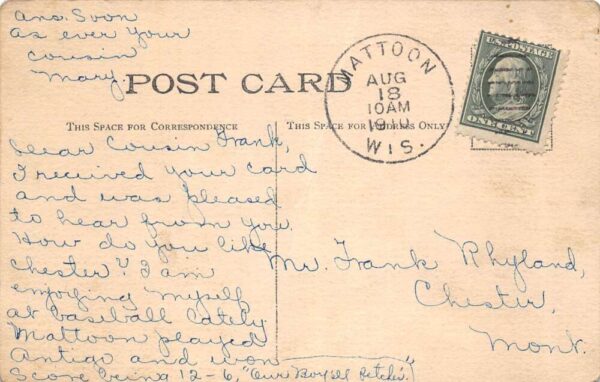 Ans. Soon
as ever your
cousin
Mary.
POST CARD
MATTOON
AUG
18
10AM
1910
WIS.
U.S. POSTAGE
ONE CENT
THIS SPACE FOR CORRESPONDENCE
THIS SPACE FOR ADDRESS ONLY
Dear Cousin Frank,
I received your card
and was pleased
to hear from you.
How do you like
Chester? I am
enjoying myself
at baseball lately
Mattoon played
Antigo and won
Score being 12-6, "Our Boys
Mr. Frank Rhyland,
Chester,
Mont.